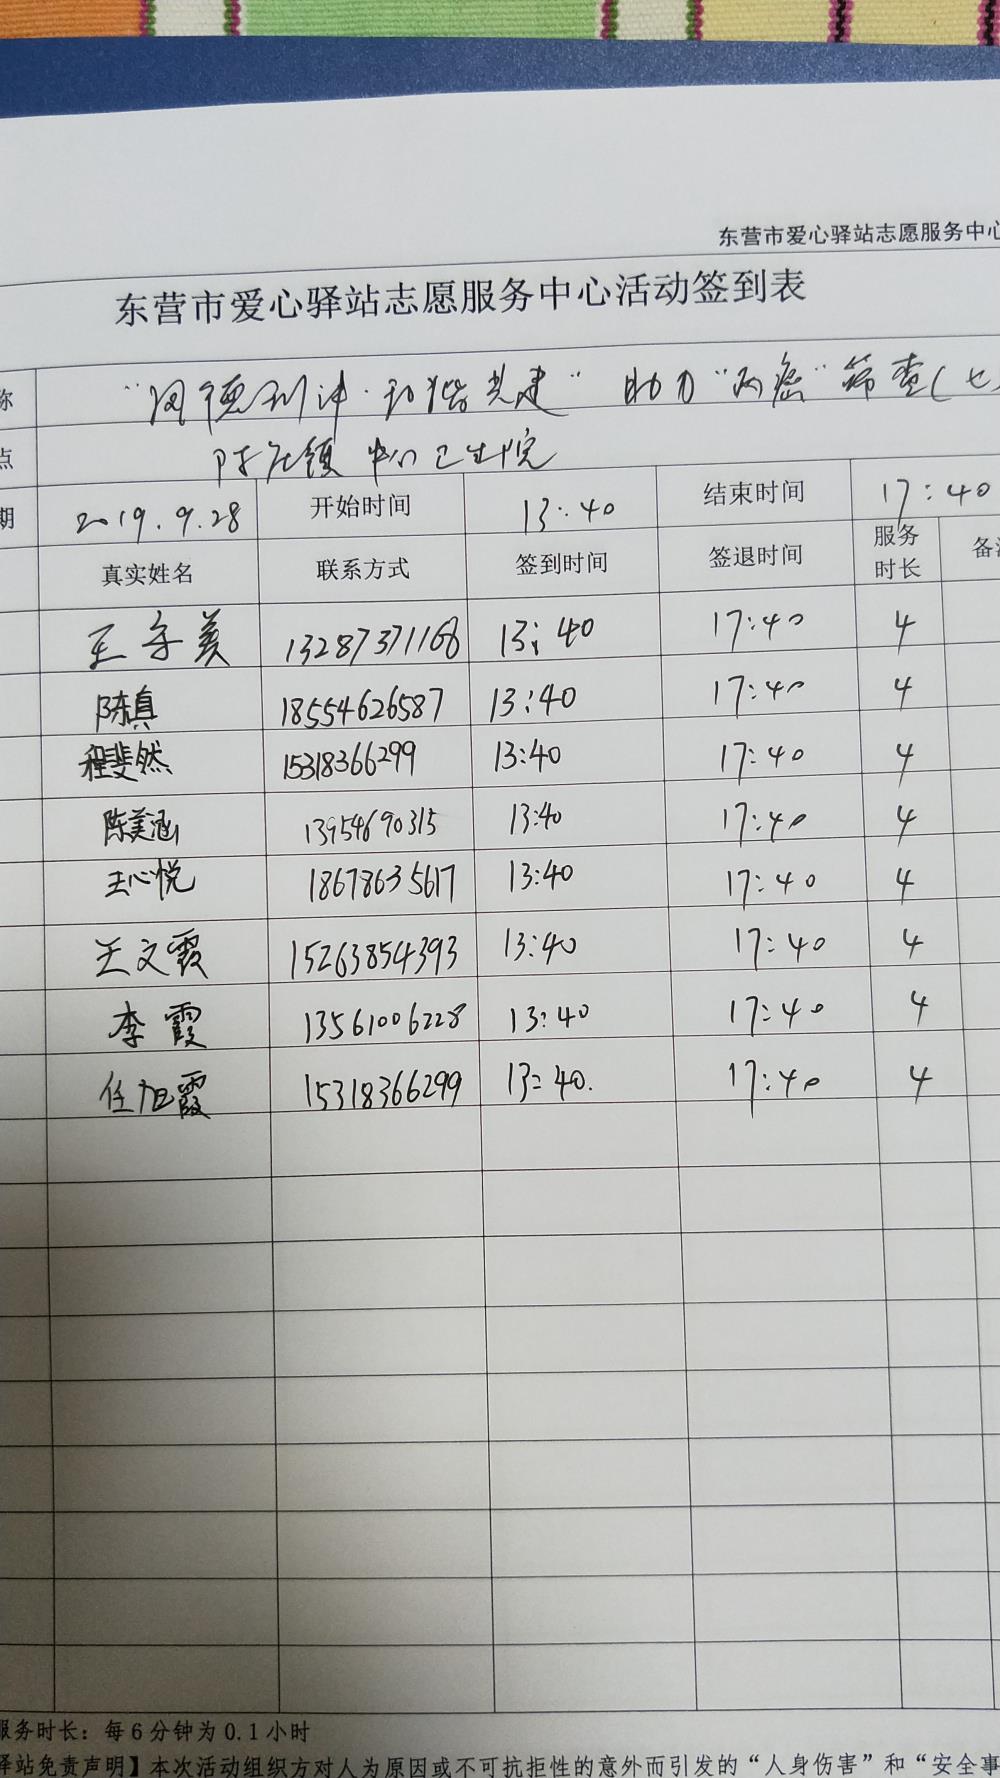 东营市爱心驿站志愿服务中心
东营市爱心驿站志愿服务中心活动签到表
称 "同德利津·和谐共建" 助力"两癌"筛查(七
点 陈庄镇中心卫生院
期 2019.9.28 开始时间 13:40 结束时间 17:40
真实姓名 联系方式 签到时间 签退时间 服务时长 备注
王守美 13287371168 13:40 17:40 4
陈真 18554626587 13:40 17:40 4
程斐然 15318366299 13:40 17:40 4
陈美涵 13954690315 13:40 17:40 4
王心悦 18678635617 13:40 17:40 4
王文霞 15263854393 13:40 17:40 4
李霞 13561006228 13:40 17:40 4
任旭霞 15318366299 13:40. 17:40 4
服务时长：每6分钟为0.1小时
驿站免责声明】本次活动组织方对人为原因或不可抗拒性的意外而引发的“人身伤害”和“安全事